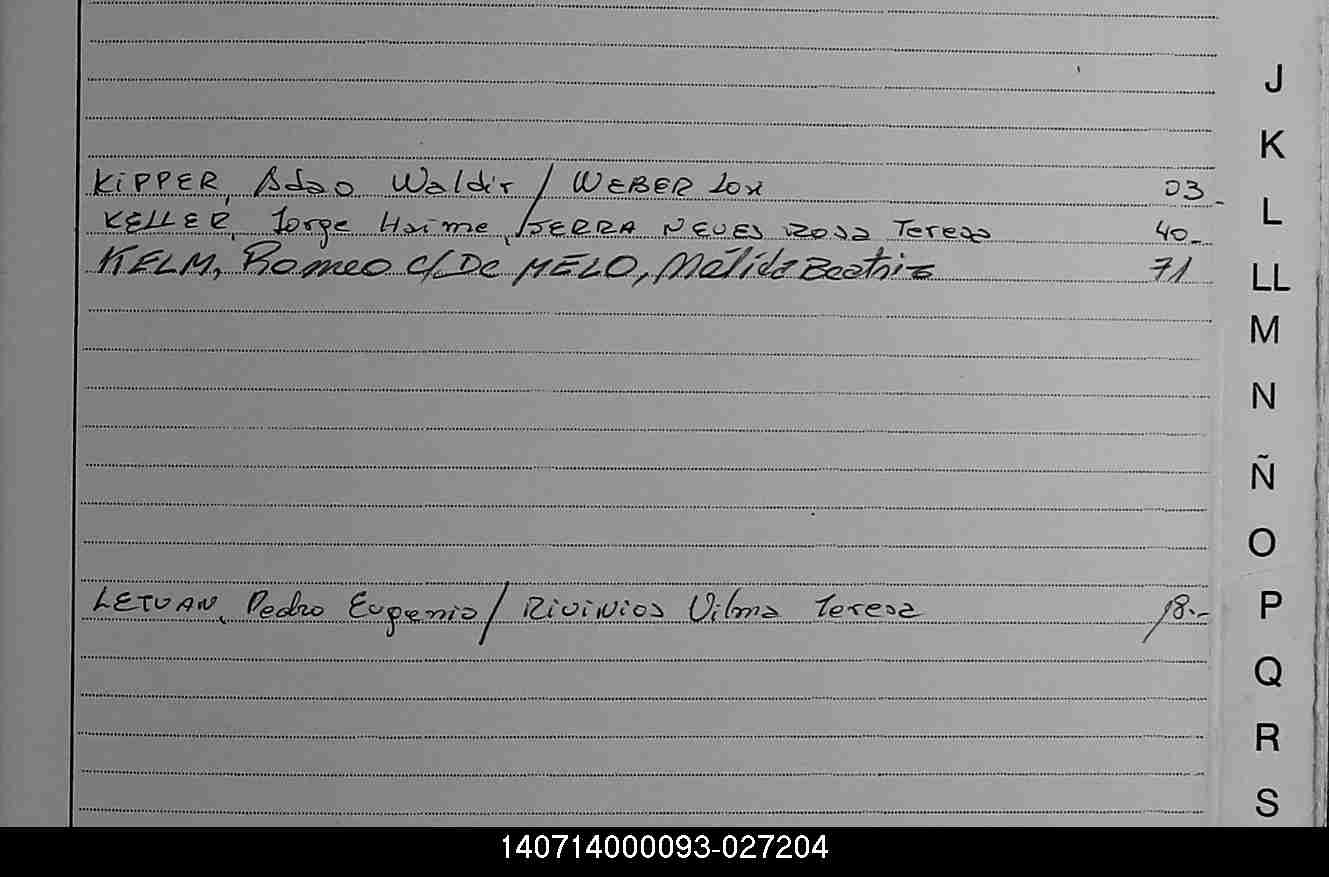 KiPPER, Adao Waldir / WEBER Loxi 03_
KELLER, Jorge Haime, / SERRA NEVES Rosa Teresa 40_
KELM, Romeo c/ De MELO, Mélida Beatriz 71
LETVAN, Pedro Eugenio / RiviNios Vilma Teresa 18.-
J
K
L
LL
M
N
Ñ
O
P
Q
R
S
140714000093-027204